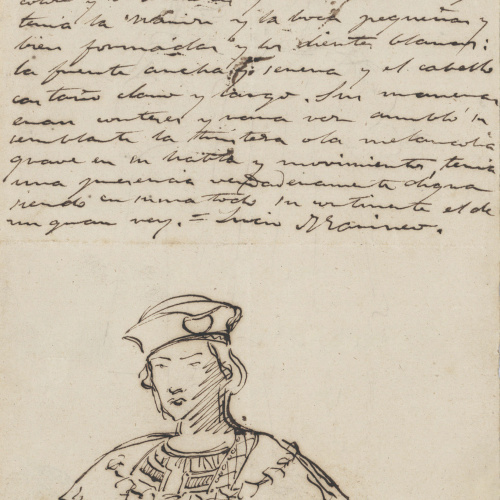 tenia la nariz y la boca pequeñas y
bien formadas y los dientes blancos:
la frente ancha y serena y el cabello
castaño claro y largo. Sus maneras
eran corteses y rara vez cambió su
semblante la tristeza o la melancolia
grave en su habla y movimientos, tenia
una presencia verdaderamente digna
siendo en suma todo su continente el de
un gran rey. = Lucio Marineo.